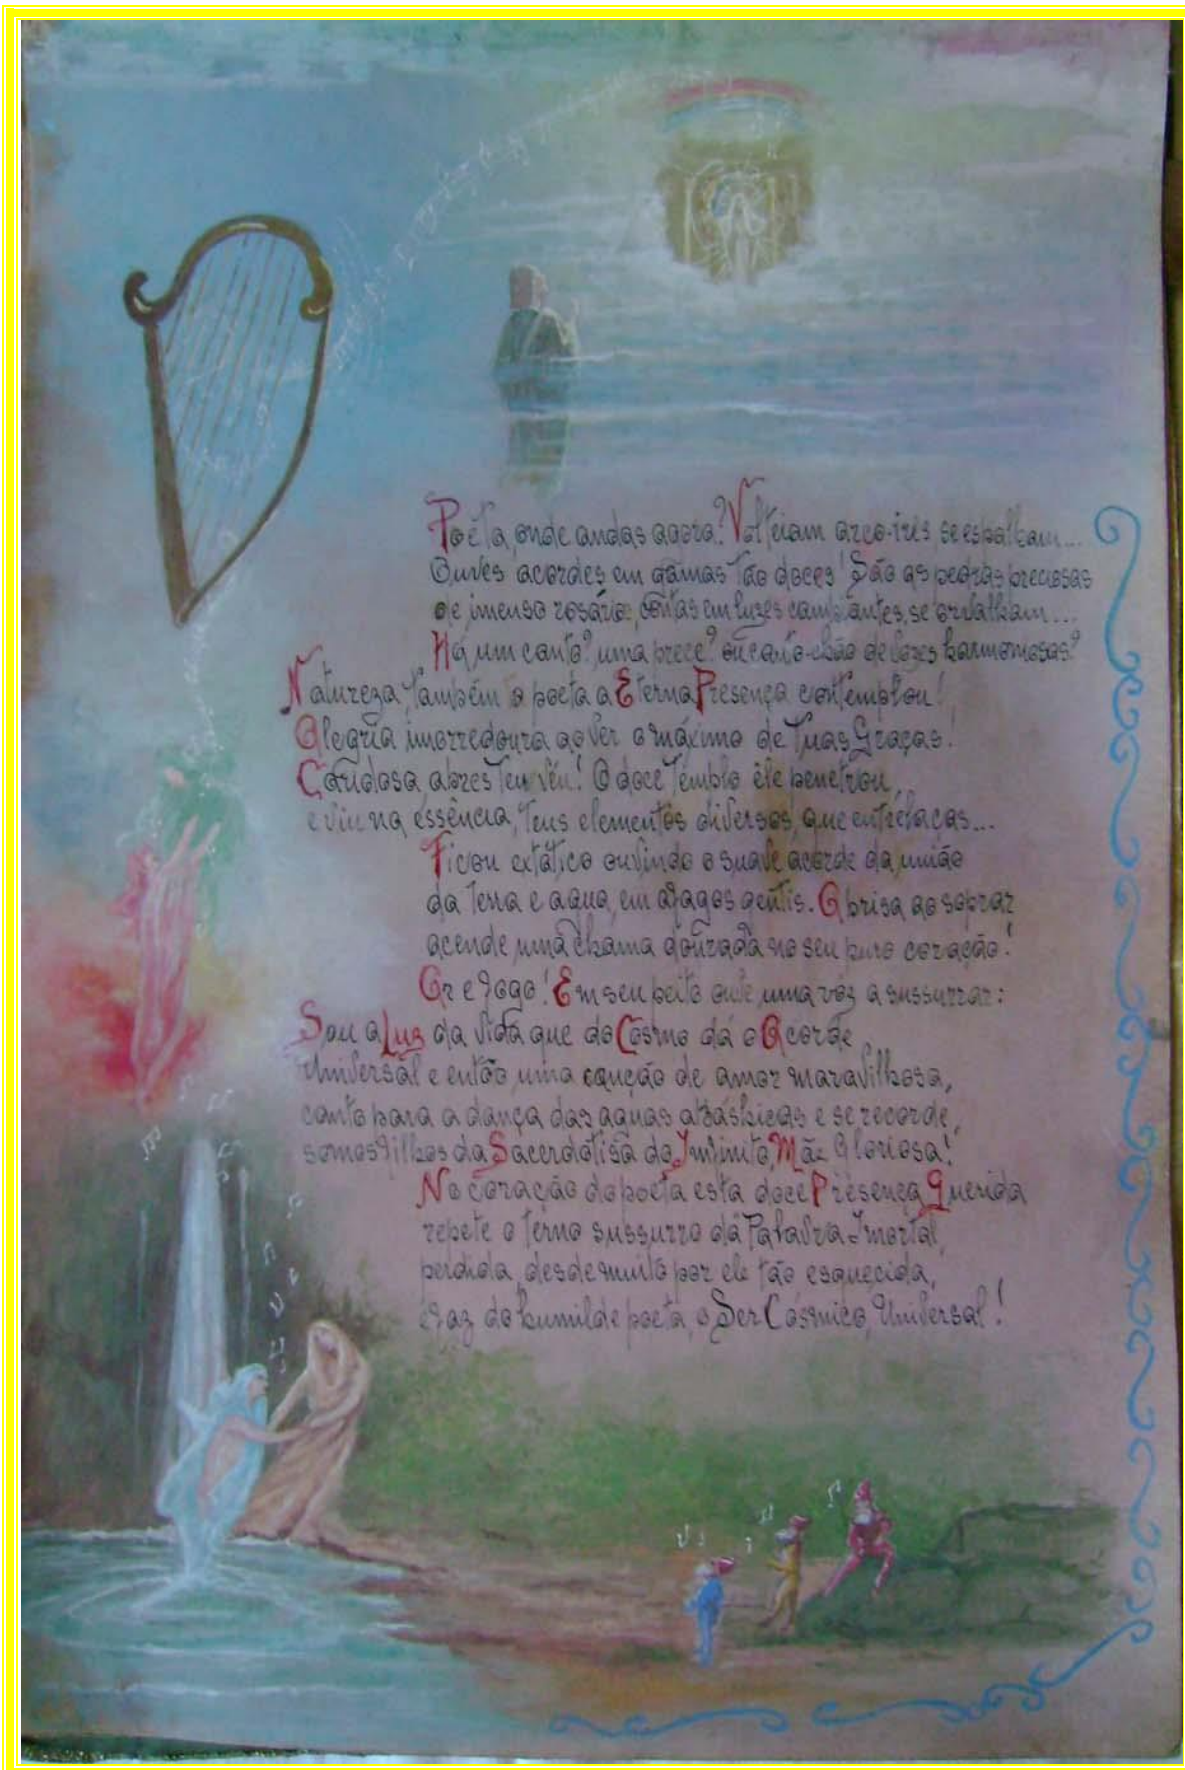 Poéta, onde andas agora? Volteiam arco-iris se espalham...
Ouves acordes em gamas tão doces! São as pedras preciosas
de imenso rosário, contas em luzes cambiantes, se orvalham...
Há um canto? uma prece? ou canto-chão de vozes harmoniosas?
Natureza, também o poeta a Eterna Presença contemplou!
Alegria imorredoura ao ver o máximo de Tuas Graças!
Caridosa, abres Teu véu! O doce Templo êle penetrou,
e viu na essência, Teus elementos diversos, que entrelaças...
Ficou extático ouvindo o suave acorde da união
da terra e agua, em afagos gentis. A brisa ao soprar
acende uma chama dourada no seu puro coração!
Ar e fogo! Em seu peito ouve uma voz a sussurrar:
Sou a Luz da vida que do Cosmo dá o Acorde
Universal e então uma canção de amor maravilhosa,
canto para a dança das aguas e se recorde,
somos filhos da Sacerdotisa do Infinito, Mãe Gloriosa!
No coração do poeta esta doce Presença Querida
repete o terno sussurro da Palavra Imortal,
perdida, desde muito por ele tão esquecida,
e faz do humilde poeta, o Ser Cósmico, Universal!